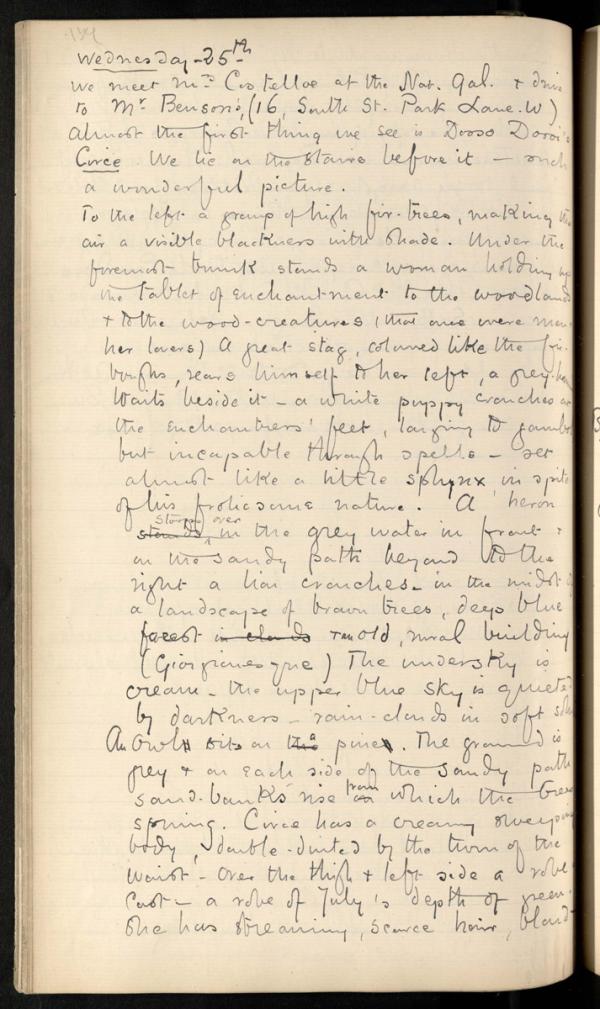 134
Wednesday - 25th
We meet Mrs Costelloe at the Nat. Gal. & drive
to Mr Benson's, (16, South St. Park Lane. W)
Almost the first thing we see is Dosso Dossi's
Circe. We lie on the stairs before it – such
a wonderful picture.
To the left a group of high fir-trees, making the
air a visible blackness with shade. Under the
foremost trunk stands a woman holding up
the tablet of Enchantment to the woodlands
& to the wood-creatures (that once were men
her lovers) A great stag, coloured like the fir-
boughs, rears himself to her left, a grey
waits beside it – a white puppy crouches at
the Enchantress' feet, longing to gambol
but incapable through spells – set
almost like a little sphynx, in spite
of his frolicsome nature. A heron
stands stoops over in the grey water in front &
on the sandy path beyond to the
right a lion crouches – in the midst of
a landscape of brown trees, deep blue
forest in clouds & an old, rural building
(Giorgionesque) The undersky is
cream – the upper blue sky is quieted
by darkness – rain-clouds in soft
An Owl sits on the a pine. The ground is
grey & on each side of the sandy path
sand-banks rise from which the trees
spring. Circe has a creamy sweeping
body, double-dinted by the turn of the
waist – over the thigh & left side a robe
cast – a robe of July's depth of green –
She has streaming, scarce hair, bland